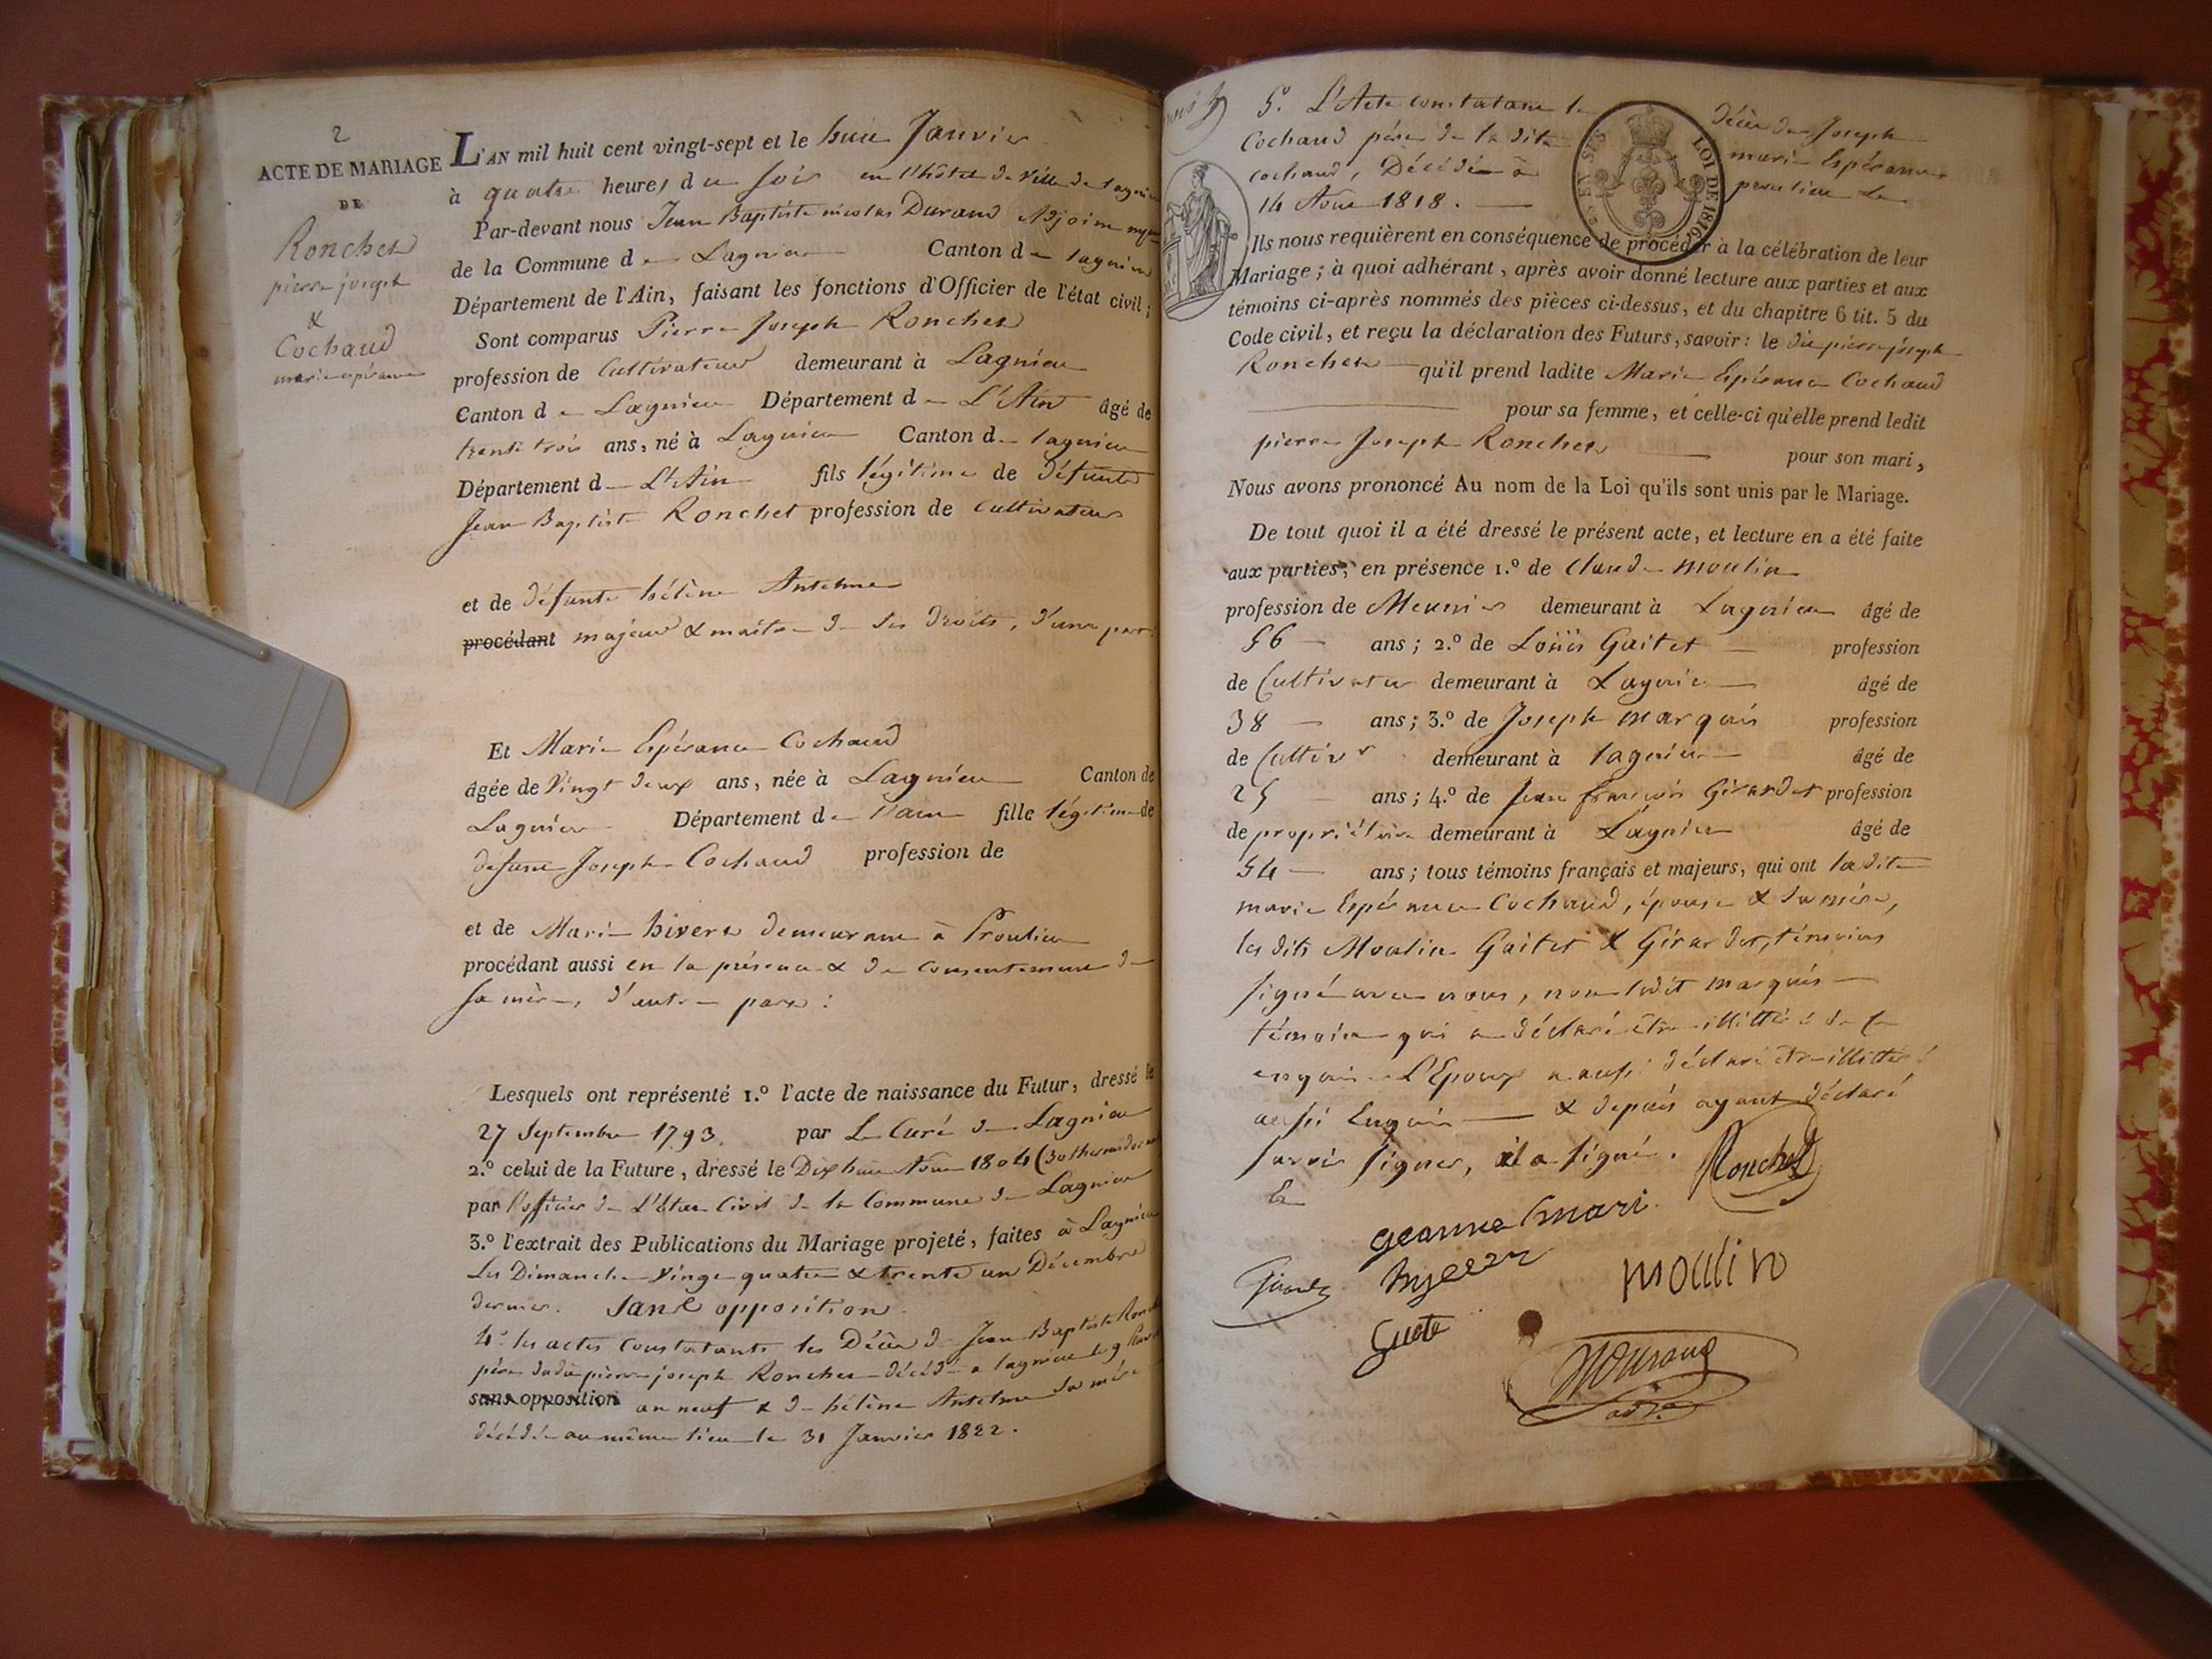 2
ACTE DE MARIAGE
DE
Ronchet
pierre joseph
&
Cochaud
marie espérance
L'AN mil huit cent vingt-sept et le huit Janvier
à quatre heures du soir en l'hôtel de Ville de lagnieu
Par-devant nous Jean Baptiste nicolas Durand Adjoint
de la Commune de Lagnieu Canton de lagnieu
Département de l'Ain, faisant les fonctions d'Officier de l'état civil;
Sont comparus Pierre Joseph Ronchet
profession de Cultivateur demeurant à Lagnieu
Canton de Lagnieu Département de L'Ain âgé de
trente trois ans, né à Lagnieu Canton de lagnieu
Département d L'Ain fils légitime de défunts
Jean Baptiste Ronchet profession de Cultivateur
et de défunte hélène Antelme
procédant majeur & maître de ses droits, d'une part
Et Marie Espérance Cochaud
âgée de Vingt deux ans, née à Lagnieu Canton de
Lagnieu Département de l'ain fille légitime de
defunt Joseph Cochaud profession de
et de Marie hivert demeurant à Proulieu
procédant aussi en la présence & du consentement de
sa mère, d'autre part :
Lesquels ont représenté 1.º l'acte de naissance du Futur, dressé le
27 Septembre 1793. par Le Curé de Lagnieu
2.º celui de la Future, dressé le Dix huit Aout 1804 (30 thermidor
par l'officier de L'Etat Civil de la Commune de Lagnieu
3.º l'extrait des Publications du Mariage projeté, faites à Lagnieu
Les Dimanche Vingt quatre & trente un Décembre
dernier. Sans opposition.
4º les actes constatants les Décès de Jean Baptiste Ronchet
père dudit pierre joseph Ronchet décédé a lagnieu le 9
sans opposition an neuf & de hélène Antelme sa mère
décédée au même lieu le 31 Janvier 1822.
5º. L'Acte constatant le décès de Joseph
Cochaud père de la dite marie Espérance
cochaud, Décédé à proulieu le
14 Aout 1818.
LOI DE 1816
Ils nous requièrent en conséquence de procéder à la célébration de leur
Mariage; à quoi adhérant, après avoir donné lecture aux parties et aux
témoins ci-après nommés des pièces ci-dessus, et du chapitre 6 tit. 5 du
Code civil, et reçu la déclaration des Futurs, savoir: le dit pierre joseph
Ronchet qu'il prend ladite Marie Espérance Cochaud
pour sa femme, et celle-ci qu'elle prend ledit
pierre Joseph Ronchet pour son mari,
Nous avons prononcé Au nom de la Loi qu'ils sont unis par le Mariage.
De tout quoi il a été dressé le présent acte, et lecture en a été faite
aux parties, en présence 1.º de Claude Moulin
profession de Meunier demeurant à Lagnieu âgé de
56 ans; 2.º de Loüis Gaitet profession
de Cultivateur demeurant à Lagnieu âgé de
38 ans; 3.º de Joseph Marquis profession
de Cultivr demeurant à lagnieu âgé de
25 ans; 4.º de Jean françois Girardet profession
de propriétaire demeurant à Lagnieu âgé de
54 ans; tous témoins français et majeurs, qui ont la dite
marie Espérance Cochaud, épouse & sa mère,
les dits Moulin Gaitet & Girardet, témoins
signé avec nous, non ledit marquis
témoin qui a déclaré être illitteré de ce
enquis L'Epoux a aussi déclaré être illitteré
aussi Enquis & depuis ayant déclaré
savoir signer, il a signé. Ronchet
geanne mari
moulin
NDurand
adj.